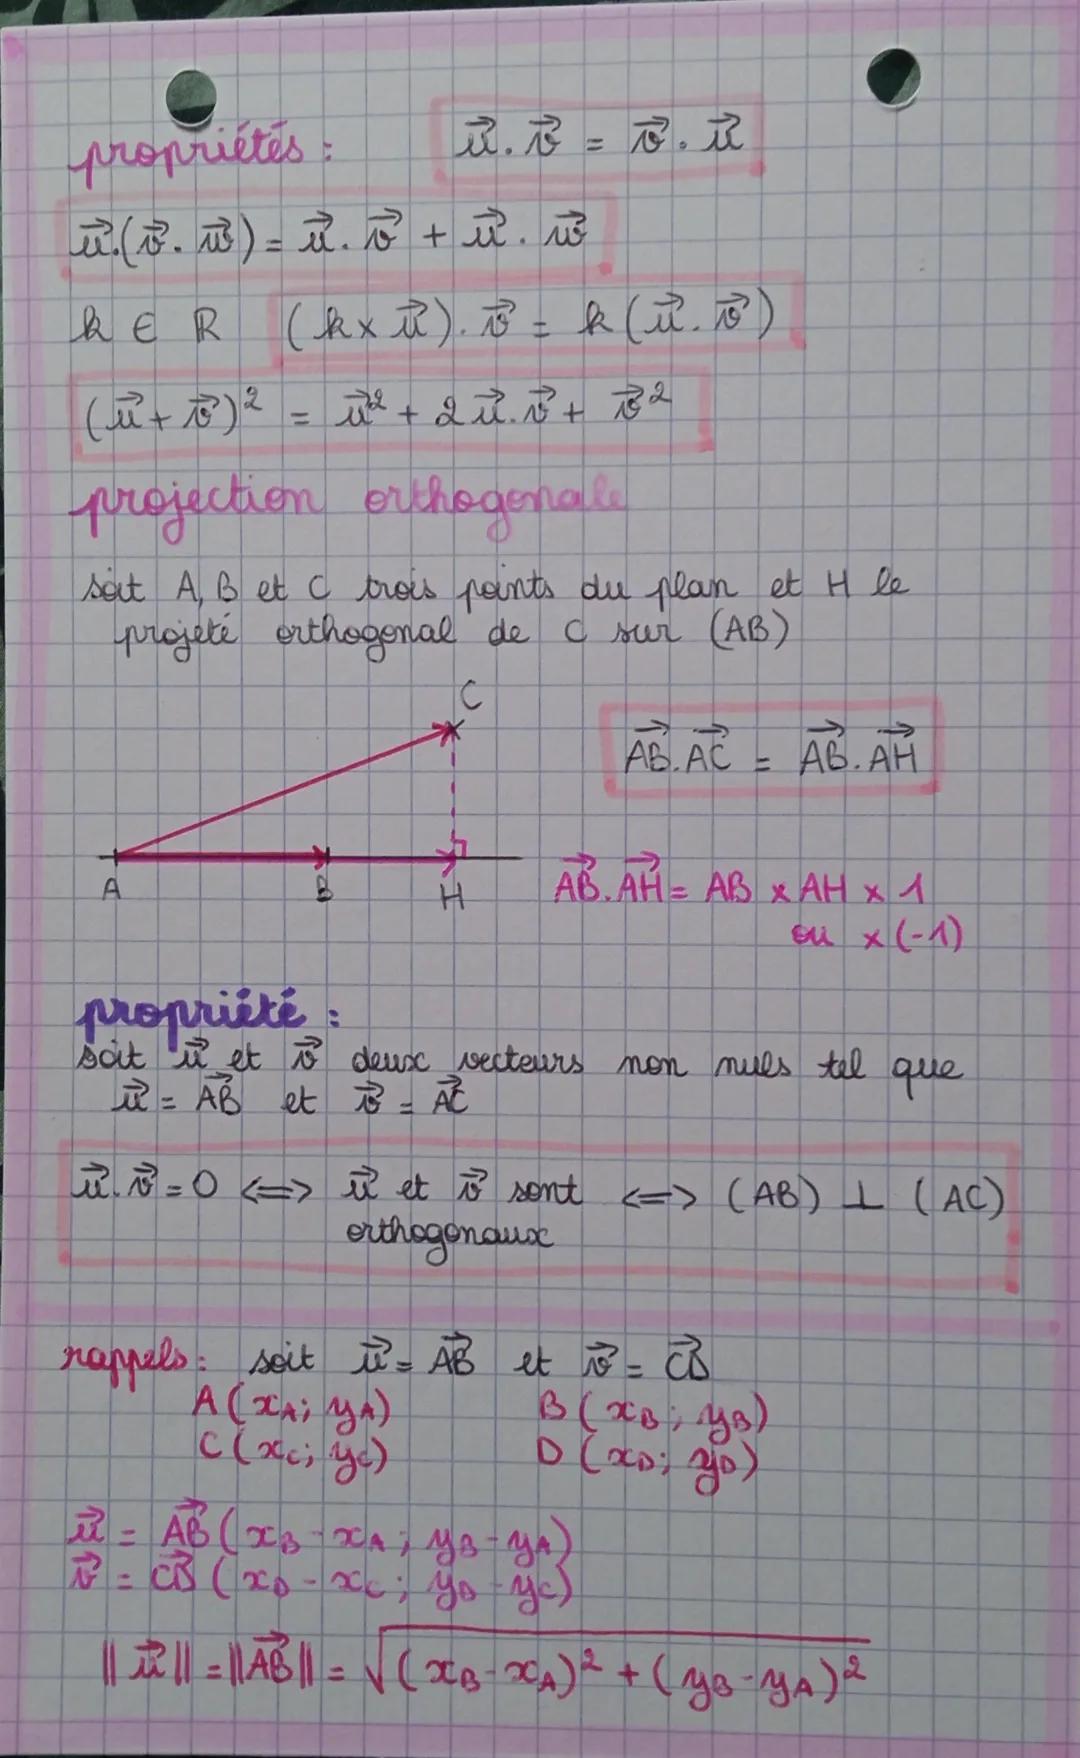 propriétés : u⃗.v⃗ = v⃗.u⃗
u⃗.(v⃗.w⃗) = u⃗.v⃗ + u⃗.w⃗
k ∈ R (k x u⃗).v⃗ = k(u⃗.v⃗)
(u⃗ + v⃗)² = u⃗² + 2u⃗.v⃗ + v⃗²
projection orthogonale
soit A, B et C trois points du plan et H le
projeté orthogonal de C sur (AB)
C
AB⃗.AC⃗ = AB⃗.AH⃗
A B H
AB⃗.AH⃗ = AB x AH x 1
ou x (-1)
propriété :
soit u⃗ et v⃗ deux vecteurs non nuls tel que
u⃗ = AB⃗ et v⃗ = AC⃗
u⃗.v⃗ = 0 <=> u⃗ et v⃗ sont <=> (AB) ⊥ (AC)
orthogonaux
rappels : soit u⃗ = AB⃗ et v⃗ = CD⃗
A(xA; yA) B(xB; yB)
C(xC; yC) D(xD; yD)
u⃗ = AB⃗(xB - xA; yB - yA)
v⃗ = CD⃗(xD - xC; yD - yC)
||u⃗|| = ||AB⃗|| = √((xB - xA)² + (yB - yA)²)